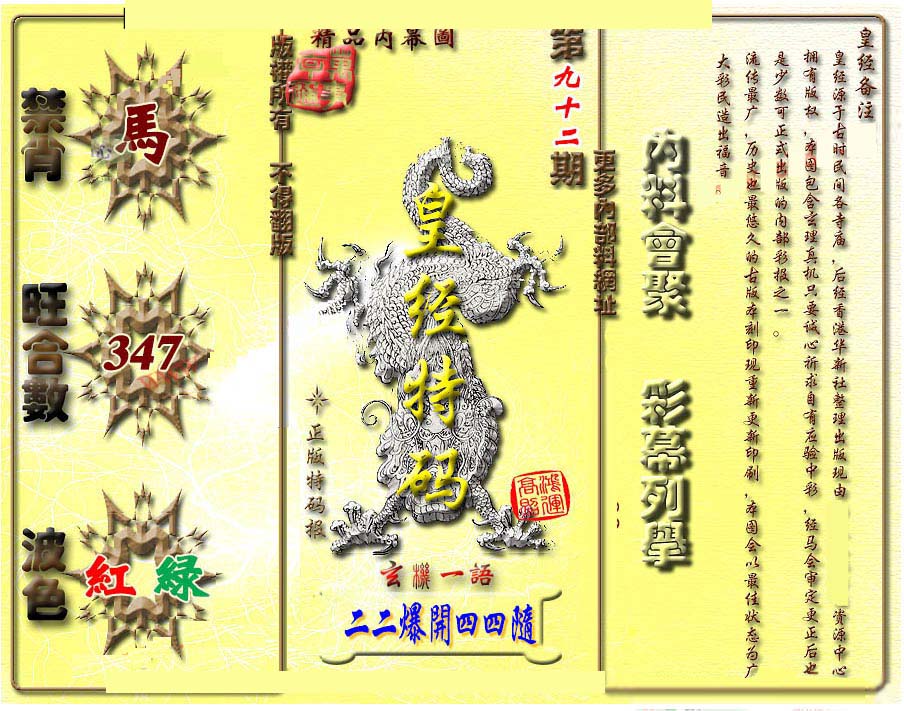 精品内幕圖
版權所有 不得翻版
第九十二期
更多内部料網址
禁肖
馬
旺合數
347
波色
紅 綠
皇经特码
正版特码报
鴻運高照
玄機一語
二二爆開四四隨
内料會聚 彩幕列舉
皇经备注
皇经源于古时民间各寺庙，后经香港华新社整理出版现由 资源中心
拥有版权，本图包含玄理真机只要诚心祈求自有应验中彩，经马会审定更正后也
是少数可正式出版的内部彩报之一。
流传最广，历史也最悠久的古版本刻印现重新更新印刷，本图会以最佳状态为广
大彩民造出福音